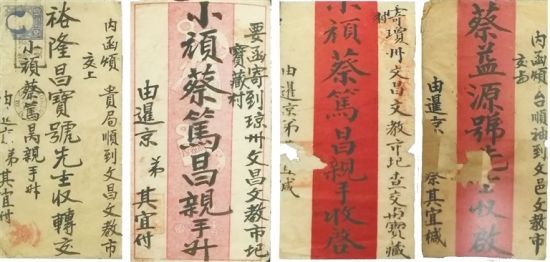 內函煩 貴局順到文昌文教市
交上
裕隆昌寶號先生收轉交
小頑蔡篤昌親手升
由 弟 其宜付
要函寄到琼州文昌文教市圯
寶藏村
小頑蔡篤昌親手升
由暹京 弟 其宜付
寄瓊州文昌文教市圯查交 寶藏
小頑蔡篤昌親手收啓
由暹京弟
內函煩 台順袖到文邑文教市
交与
蔡益源號先生收啟
由暹京 蔡其宜椷